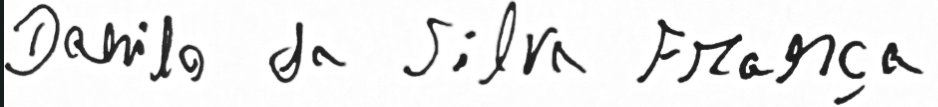 Danilo da Silva França